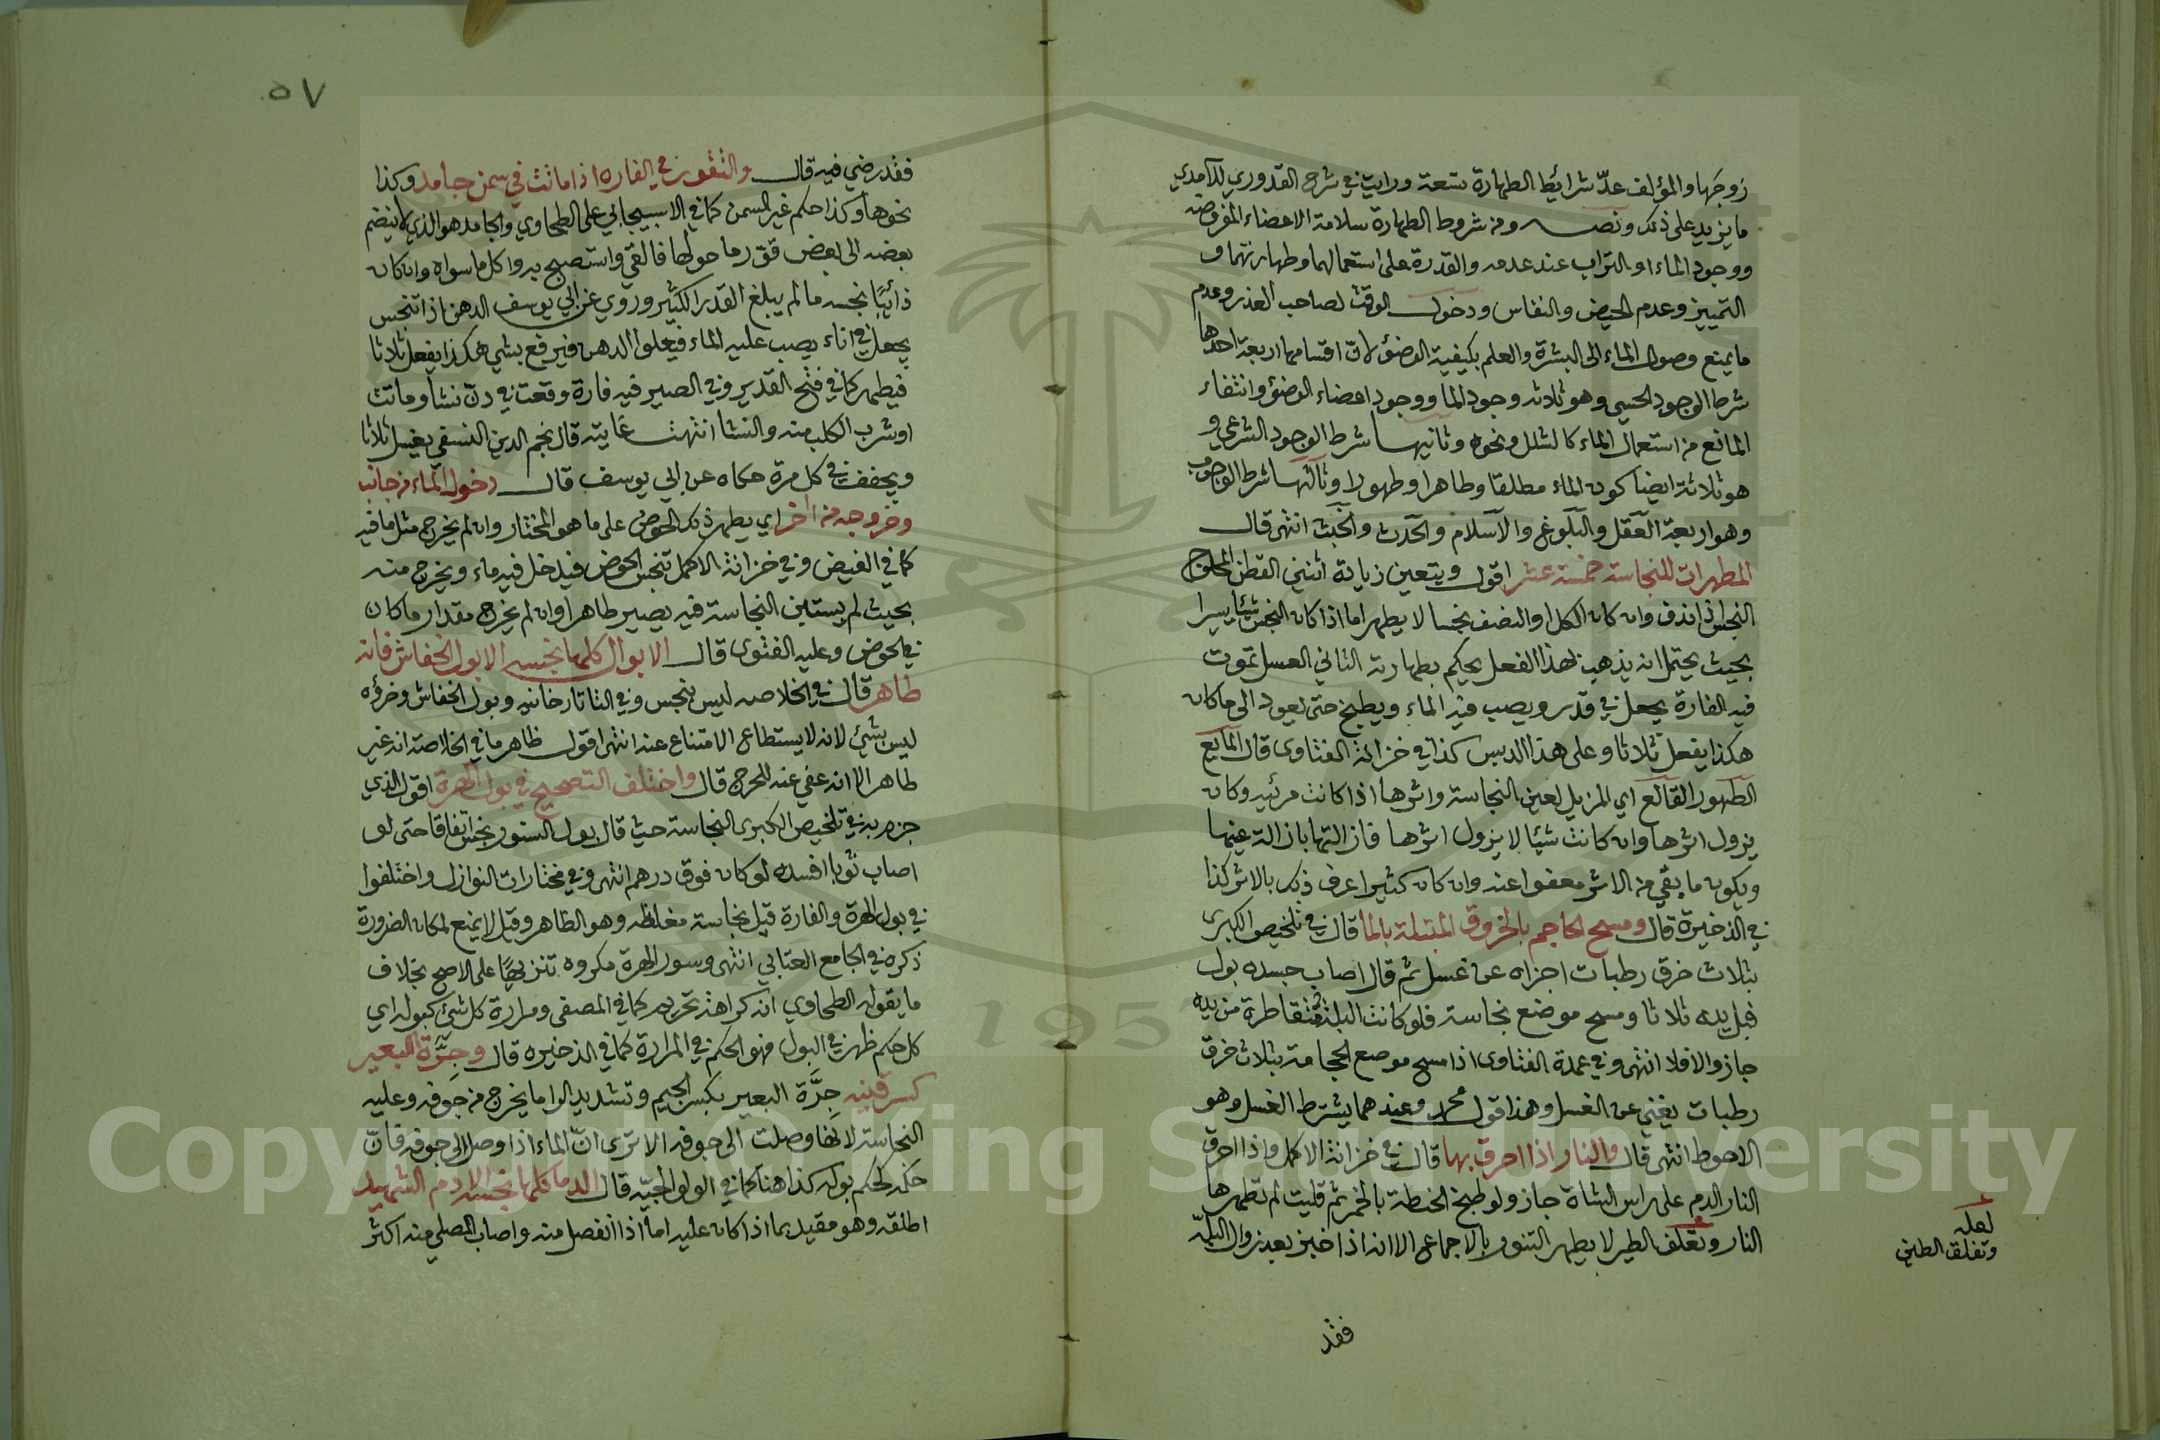 زوجها والمؤلف عدّ شرائط الطهارة تسعة ورايت في شرح القدوري للآمدي
ما يزيد على ذلك ونصه ومن شروط الطهارة سلامة الاعضاء المفروضه
ووجود الماء او التراب عند عدمه والقدرة على استعمالهما وطهارتهما و
التمييز وعدم الحيض والنفاس ودخول الوقت لصاحب العذر وعدم
ما يمنع وصول الماء الى البشرة والعلم بكيفية الوضؤ لان اقسامها اربعة احدها
شرط الوجود الحسي وهو ثلاثه وجود الما ووجود اعضاء الوضؤ وانتفاء
المانع من استعمال الماء كالشلل ونحوه وثانيها شرط الوجود الشرعي و
هو ثلاثة ايضا كون الماء مطلقا وطاهرا وطهورا وثالثها شرط الوجوب
وهو اربعة العقل والبلوغ والاسلام والحدث والخبث انتهى قال
المطهرات للنجاسة خمسة عشر اقول ويتعين زيادة اثنين القطن المحلوج
النجس اذا ندف وان كان الكل او النصف نجسا لا يطهر اما اذا كان النجس شيئا يسيرا
بحيث يحتمل انه يذهب بهذا الفعل يحكم بطهارته الثاني العسل تموت
فيه الفارة يجعل في قدر ويصب فيه الماء ويطبخ حتى يعود الى ما كان
هكذا يفعل ثلاثا وعلى هذا الدبس كذا في خزانة الفتاوى قال المايع
الطهور القالع اي المزيل لعين النجاسة واثرها اذا كانت مرئيه وكان
يزول اثرها وان كانت شيئا لا يزول اثرها فازالتها بازالة عينها
ويكون ما بقي من الاثر معفوا عنه وان كان كثيرا عرف ذلك بالاثر كذا
في الذخيرة قال ومسح الحاجم بالخروق المبتلة بالما قال في تلخيص الكبرى
بثلاث خرق رطبات اجزاه عن غسل ثم قال اصاب جسده بول
فبل يده ثلاثا ومسح موضع نجاسة فلو كانت البلة متقاطرة من يده
جاز والا فلا انتهى وفي عمدة الفتاوى اذا مسح موضع الحجامة بثلاث خرق
رطبات يغني عن الغسل وهذا قول محمد وعندهما يشترط الغسل وهو
الاحوط انتهى قال والنار اذا احرق بها قال في خزانة الاكمل واذا احرق
النار الدم على راس الشاة جاز ولو طبخ الحنطة بالخمر ثم قليت لم تطهرها
النار وتعلف الطير لا يطهر التنور بالاجماع الا انه اذا خبز بعد زوال البلة
لعله
وتفلق الطين
فقد
٥٧
فقد رضي فيه قال والتقوير في الفاره اذا ماتت في سمن جامد وكذا
نحوها وكذا حكم غير السمن كما في الاسبيجابي على الطحاوي والجامد هو الذي لا ينضم
بعضه الى بعض فقور ما حولها فالقي واستصبح به واكل ما سواه وان كان
ذائبًا نجسه ما لم يبلغ القدر الكثير وروي عن ابي يوسف الدهن اذا تنجس
يجعل في اناء يصب عليه الماء فيعلوا الدهن فيرفع بشي هكذا يفعل ثلاثا
فيطهر كما في فتح القدير وفي الصير فيه فارة وقعت في دن نشا وماتت
او شرب الكلب منه والنشا انتهت غايته قال نجم الدين النسفي يغسل ثلاثا
ويجفف في كل مرة حكاه عن ابي يوسف قال دخول الماء من جانب
وخروجه من اخر اي يطهر ذلك الحوض على ما هو المختار وان لم يخرج مثل ما فيه
كما في الفيض وفي خزانة الاكمل تنجس الحوض فيدخل فيه ماء ويخرج منه
بحيث لم يستبن النجاسة فيه يصير طاهرا وان لم يخرج مقدار ما كان
في الحوض وعليه الفتوى قال الابوال كلها نجسه الا بول الخفاش فانه
طاهر قال في الخلاصه ليس بنجس وفي التاتارخانيه وبول الخفاش وخرؤه
ليس بشئ لانه لا يستطاع الامتناع عنه انتهى اقول ظاهر ما في الخلاصة انه غير
طاهر الا انه عفي عنه للحرج قال واختلف التصحيح في بول الهرة اقول الذي
جزم به في تلخيص الكبرى النجاسة حيث قال بول السنور نجس اتفاقا حتى لو
اصاب ثوبا افسده لو كان فوق درهم انتهى وفي مختارات النوازل واختلفوا
في بول الهرة والفارة قيل نجاسة مغلظه وهو الظاهر وقيل لا يمنع لمكان الضرورة
ذكره في الجامع العتابي انتهى وسور الهرة مكروه تنزيهًا على الاصح بخلاف
ما يقوله الطحاوي انه كراهة تحريم كما في المصفى ومرارة كل شئ كبوله اي
كل حكم ظهر في البول فهو الحكم في المرارة كما في الذخيره قال وجِرَّة البعير
كسرقينه جِرَّة البعير بكسر الجيم وتشديد الرا ما يخرج من جوفه وعليه
النجاسة لانها وصلت الى جوفه الا ترى ان الماء اذا وصل الى جوفه فان
حكمه حكم بوله كذا هنا كما في الولوالجيه قال الدما كلها نجسه الا دم الشهيد
اطلقه وهو مقيد بما اذا كان عليه اما اذا انفصل منه واصاب المصلي منه اكثر
Copyright © King Saud University
1957